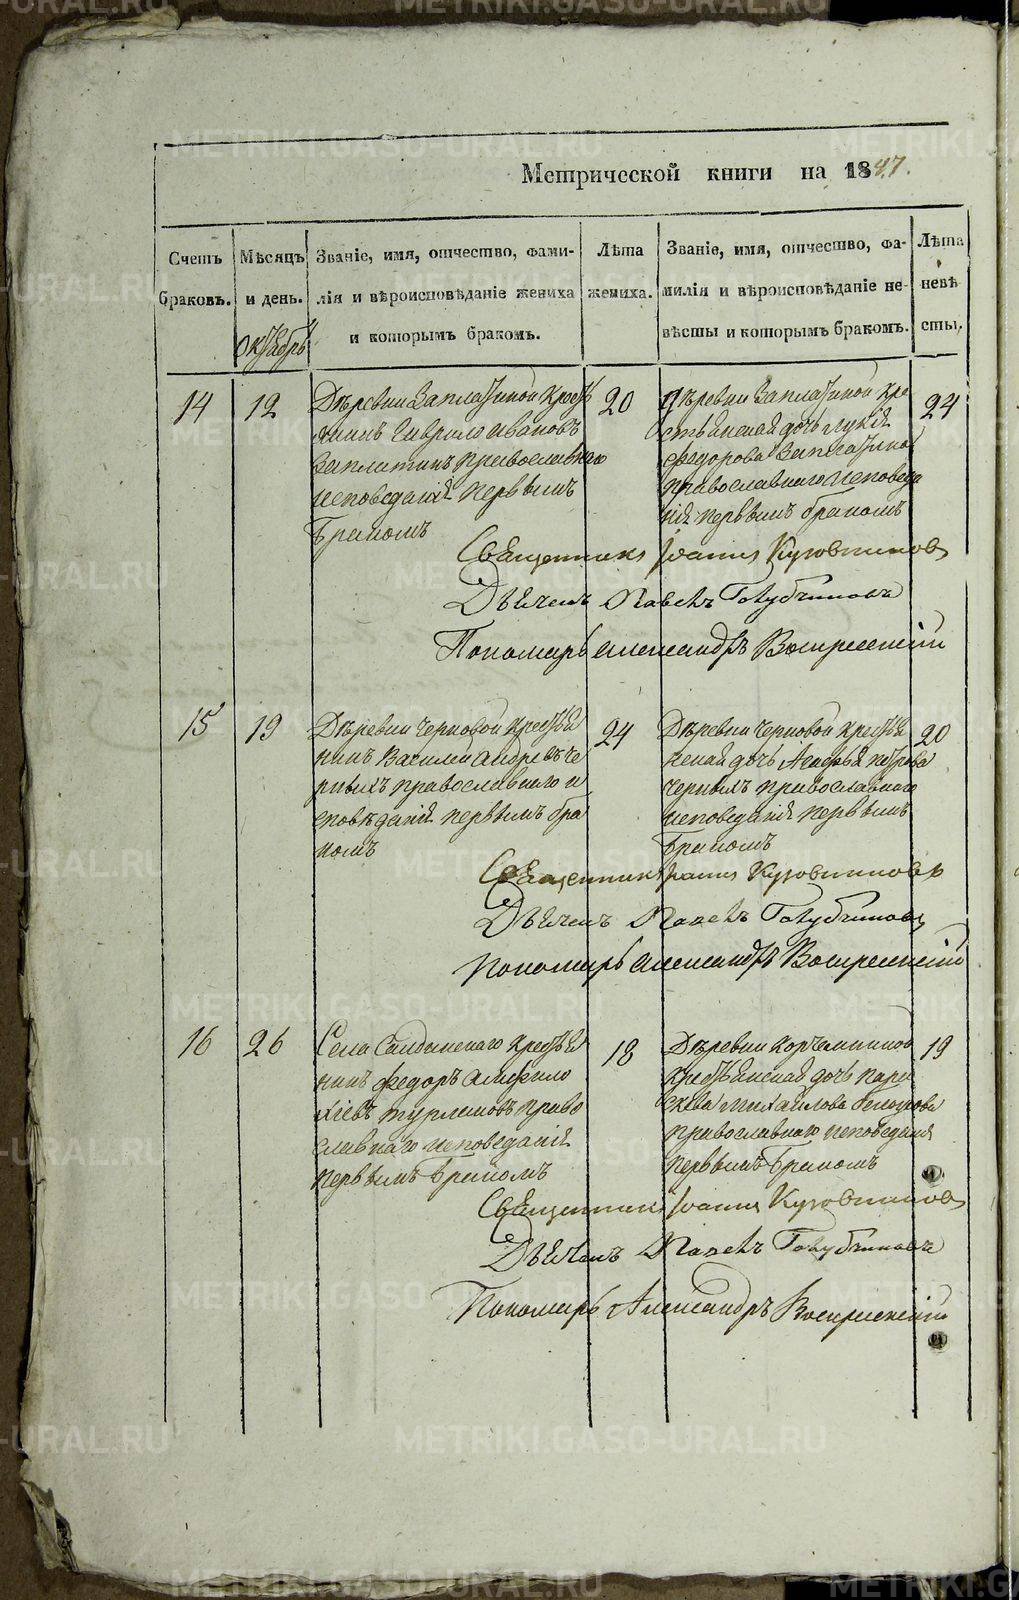 Метрической книги на 1847.
Счетъ браковъ.
Мѣсяцъ и день.
Октябрь
Званіе, имя, отчество, фами-
лія и вѣроисповѣданіе жениха
и которымъ бракомъ.
Лѣта жениха.
Званіе, имя, отчество, фа-
милія и вѣроисповѣданіе не-
вѣсты и которымъ бракомъ.
Лѣта невѣ
сты.
14
12
Деревни Заплатиной Кресть
янинъ Гаврило Ивановъ
Заплатинъ православнаго
исповеданія первымъ
бракомъ
20
Деревни Заплатиной Кре
стьянская дочь Лукія
Федорова Заплатина
православнаго исповеда
нія первымъ бракомъ
24
Священникъ Іоаннъ Кузовниковъ
Дьячекъ Павелъ Голубчиковъ
Пономарь Александръ Воскресенскій
15
19
Деревни Черновой Крестья
нинъ Василей Андреевъ Че
рныхъ православнаго и
споведанія первымъ бра
комъ
24
Деревни Черновой Крестья
нская дочь Агафья Петрова
Черныхъ православнаго
исповеданія первымъ
бракомъ
20
Священникъ Іоаннъ Кузовниковъ
Дьячекъ Павелъ Голубчиковъ
Пономарь Александръ Воскресенскій
16
26
Села Салдинскаго Крестья
нинъ Федоръ Амфило
хіевъ право
славнаго исповеданія
первымъ бракомъ
18
Деревни
Крестьянская дочь Парас
кева Михайлова
православнаго исповеданія
первымъ бракомъ
19
Священникъ Іоаннъ Кузовниковъ
Дьячекъ Павелъ Голубчиковъ
Пономарь Александръ Воскресенскій
METRIKI.GASO-URAL.RU